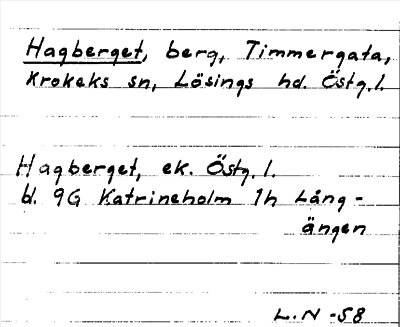 Hagberget, berg, Timmergata,
Krokeks sn, Lösings hd. Östg. l.
Hagberget, ek. Östg. l.
bl. 9G Katrineholm 1h Lång-
ängen
L.N -58